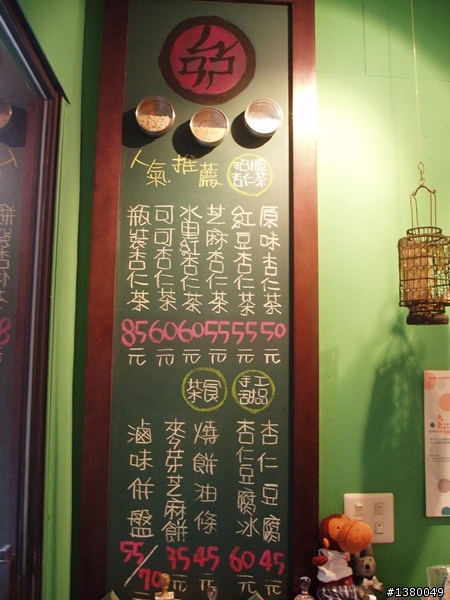 人氣推薦
超濃杏仁茶
原味杏仁茶 50元
紅豆杏仁茶 55元
芝麻杏仁茶 55元
冰果紅杏仁茶 60元
可可杏仁茶 60元
瓶裝杏仁茶 85元
手工甜品
杏仁豆腐 45元
杏仁豆腐冰 60元
茶食
燒餅油條 45元
麥芽芝麻餅 35元
滷味併盤 55/70元
#1380049